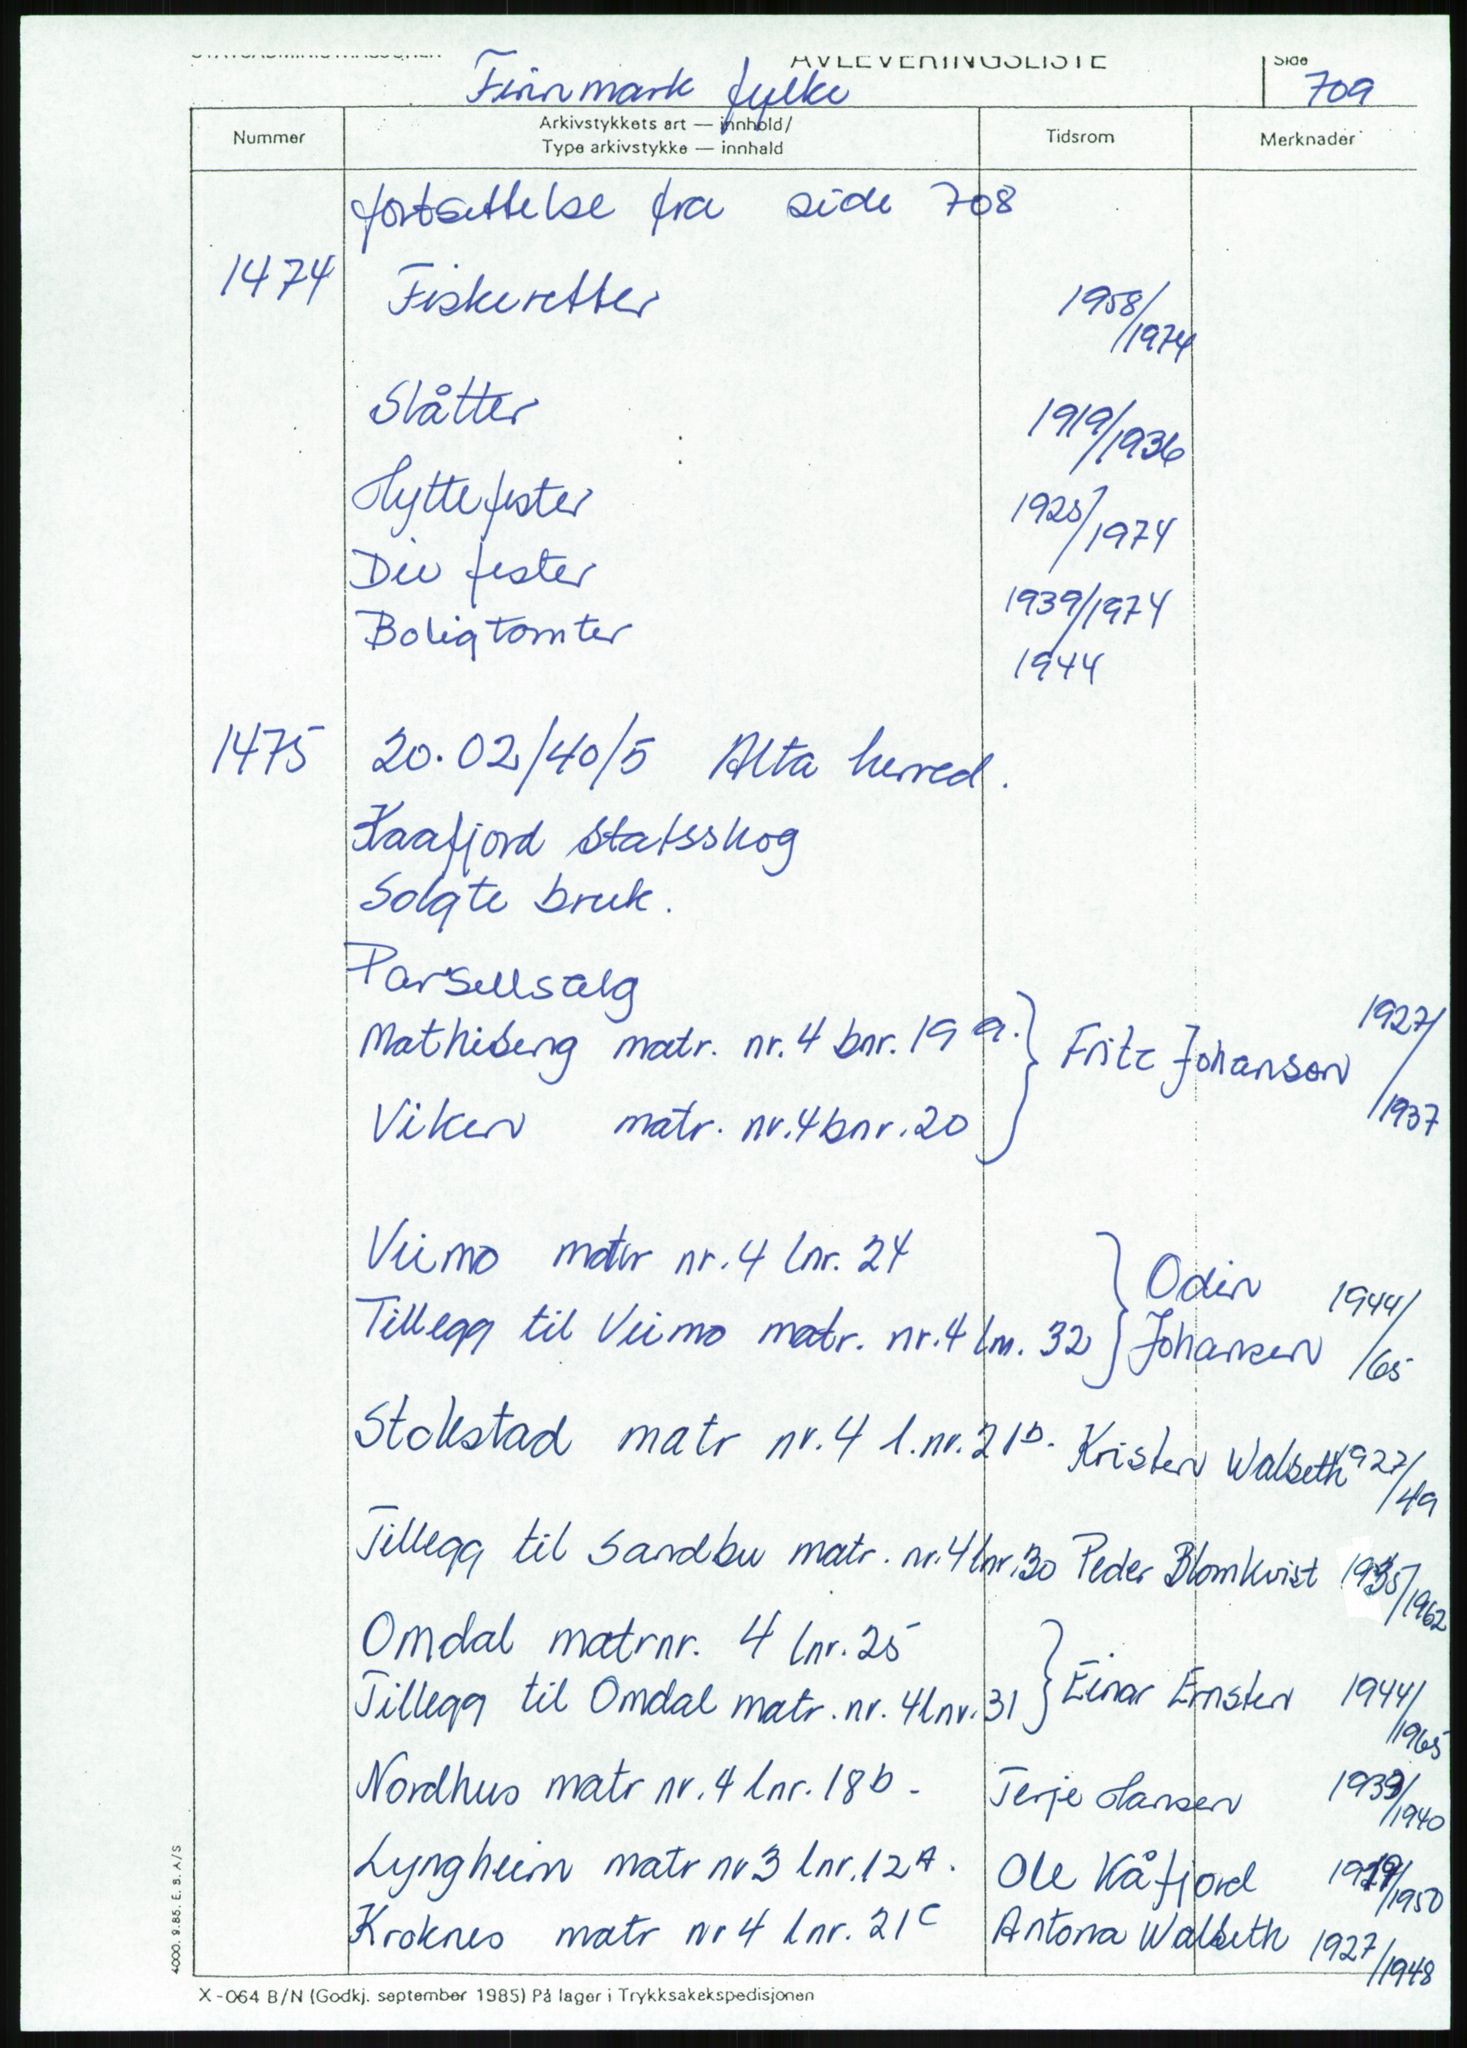 AVLEVERINGSLISTE Side
Finnmark fylke 709
Nummer Arkivstykkets art — innhold/ Tidsrom Merknader
Type arkivstykke — innhald
fortsettelse fra side 708
1474 Fiskeretter 1958/1974
Slåtter 1919/1936
Hyttefester 1925/1974
Div fester 1939/1974
Boligtomter 1944
1475 20.02/40/5 Alta herred.
Kaafjord statsskog
Solgte bruk.
Parsellsalg
Mathisberg matr. nr. 4 bnr. 19 a. } Fritz Johansen 1927/1937
Viken matr. nr. 4 bnr. 20
Viimo matr nr. 4 lnr. 24 } Odin Johansen 1944/65
Tillegg til Viimo matr. nr. 4 lnr. 32
Stokstad matr nr. 4 l.nr. 21b. Kristen Walseth 1927/49
Tillegg til Sandbu matr. nr. 4 lnr. 30 Peder Blomkvist 1935/1962
Omdal matrnr. 4 lnr. 25 } Einar Ernsten 1944/1965
Tillegg til Omdal matr. nr. 4 lnr. 31
Nordhus matr nr. 4 lnr. 18b - Terje Hansen 1939/1940
Lyngheim matr nr 3 lnr. 12A. Ole Kåfjord /1950
Kroknes matr nr 4 lnr. 21C Antona Walseth 1927/1948
X-064 B/N (Godkj. september 1985) På lager i Trykksakekspedisjonen
4000. 9.85. E. B. A/S